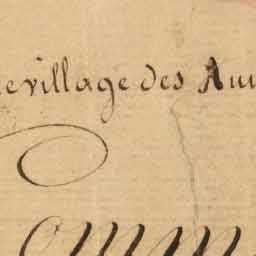 e village des Au
omm